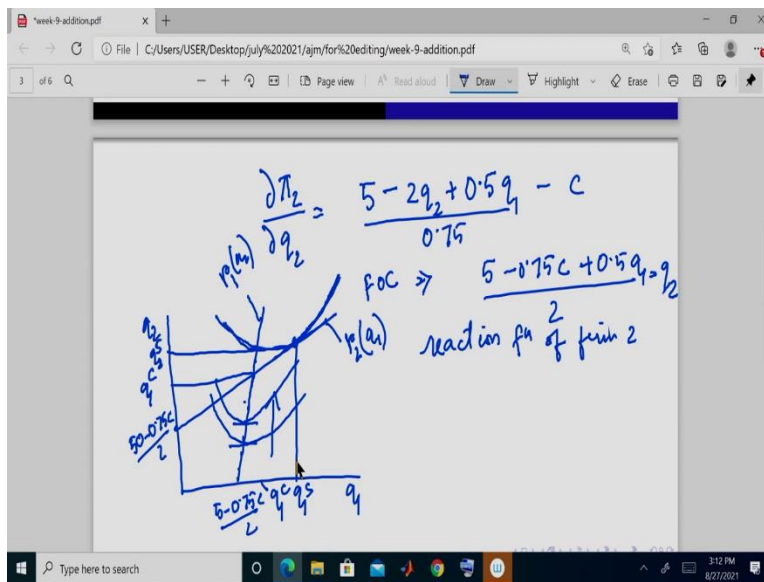 *week-9-addition.pdf
File | C:/Users/USER/Desktop/july%202021/ajm/for%20editing/week-9-addition.pdf
3 of 6 Page view Read aloud Draw Highlight Erase
∂π₂/∂q₂ = (5 - 2q₂ + 0.5q₁)/0.75 - c
FOC ⇒ (5 - 0.75c + 0.5q₁)/2 = q₂
reaction fn of firm 2
q₂
(50-0.75c)/2
(5-0.75c)/2 q₁ᶜ q₁ˢ q₁
Type here to search
3:12 PM
8/27/2021